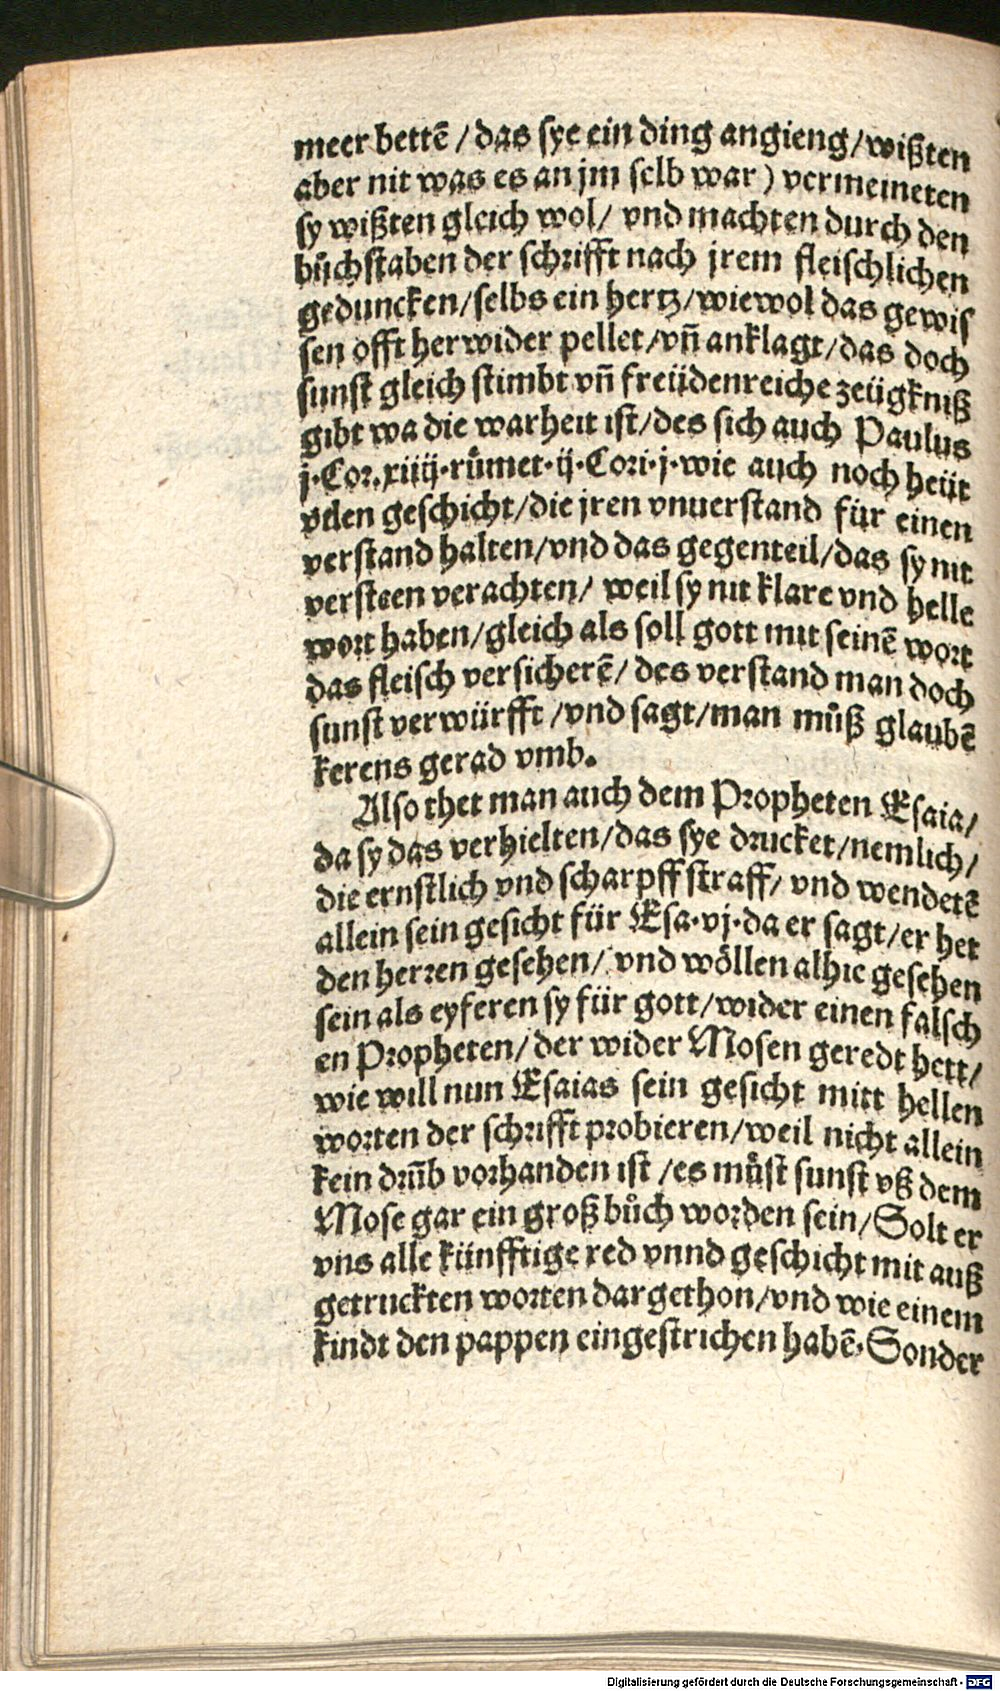 meer bettē / das sye ein ding angieng / wißten
aber nit was es an jm selb war ) vermeineten
sy wißten gleich wol / vnd machten durch den
bůchstaben der schrifft nach jrem fleischlichen
geduncken / selbs ein hertz / wiewol das gewis
sen offt herwider pellet / vñ anklagt / das doch
sunst gleich stimbt vñ freüdenreiche zeügkniß
gibt wa die warheit ist / des sich auch Paulus
j. Cor. xiiij. růmet. ij. Cori. j. wie auch noch heüt
vilen geschicht / die jren vnuerstand für einen
verstand halten / vnd das gegenteil / das sy nit
versteen verachten / weil sy nit klare vnd helle
wort haben / gleich als soll gott mit seinē wort
das fleisch versicherē / des verstand man doch
sunst verwürfft / vnd sagt / man můß glaubē
kerens gerad vmb.
Also thet man auch dem Propheten Esaia /
da sy das verhielten / das sye drucket / nemlich /
die ernstlich vnd scharpff straff / vnd wendetē
allein sein gesicht für Esa. vj. da er sagt / er het
den herren gesehen / vnd wöllen alhie gesehen
sein als eyferen sy für gott / wider einen falsch
en Propheten / der wider Mosen geredt hett /
wie will nun Esaias sein gesicht mitt hellen
worten der schrifft probieren / weil nicht allein
kein drüb vorhanden ist / es můst sunst vß dem
Mose gar ein groß bůch worden sein / Solt er
vns alle künfftige red vnnd geschicht mit auß
getruckten worten dargethon / vnd wie einem
kindt den pappen eingestrichen habē. Sonder
Digitalisierung gefördert durch die Deutsche Forschungsgemeinschaft - DFG